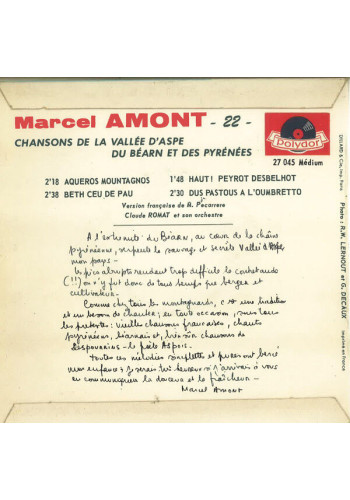 Marcel AMONT - 22 -
CHANSONS DE LA VALLÉE D'ASPE
DU BÉARN ET DES PYRÉNÉES
Polydor
27 045 Médium
2'18 AQUEROS MOUNTAGNOS
2'38 BETH CEU DE PAU
1'48 HAUT! PEYROT DESBELHOT
2'30 DUS PASTOUS A L'OUMBRETTO
Version française de A. Pecarrere
Claude ROMAT et son orchestre
A l'extrémité du Béarn, au cœur de la chaîne
pyrénéenne, serpente la sauvage et secrète Vallée d'Aspe,
mon pays -
les pics abrupts rendant trop difficile la contrebande
(!!) on n'y fut donc de tous temps que berger et
cultivateur.
Comme chez tous les montagnards, c'est une habitude
et un besoin de chanter, en toute occasion, sous tous
les prétextes: vieilles chansons françaises, chants
pyrénéens, béarnais et, très souvent chansons de
Despourrins - le poète Aspois.
toutes ces mélodies simplettes et pures ont bercé
mon enfance; je serais très heureux si j'arrivais à vous
en communiquer la douceur et la fraîcheur -
Marcel Amont
DILLARD & Cie, Imp. Paris
Photo : R.K. LERNOUT et G. DECAUX
Imprimé en France